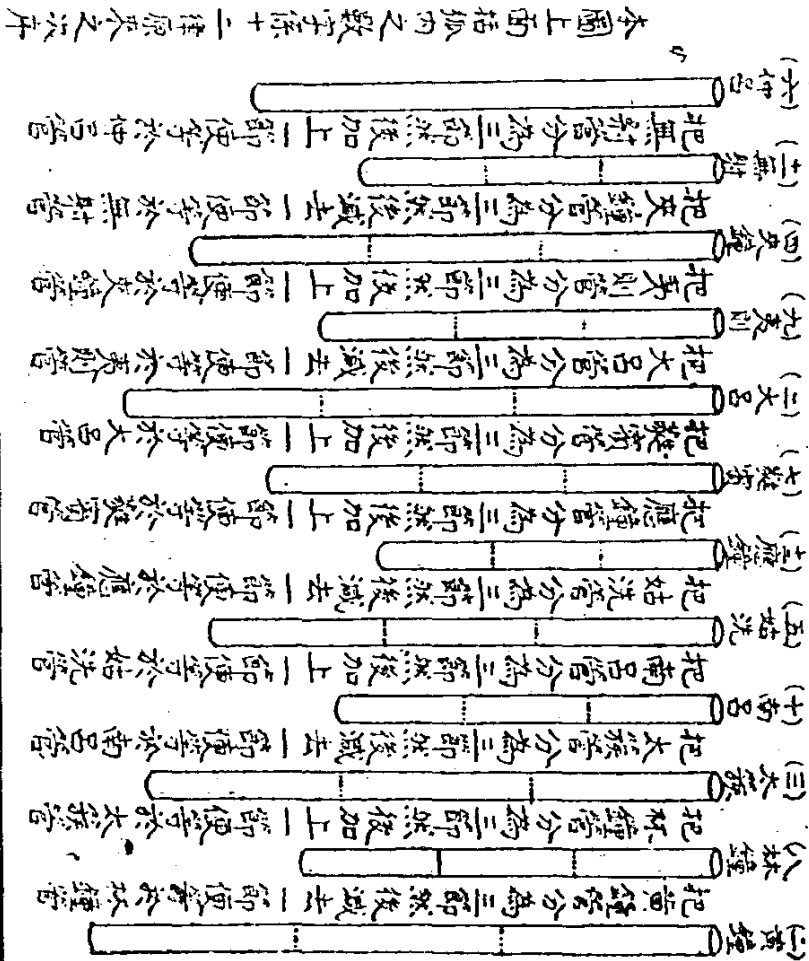 (一)黃鐘
把黃鐘管分為三節然後減去一節便等於林鐘管
(八)林鐘
把林鐘管分為三節然後加上一節便等於太簇管
(三)太簇
把太簇管分為三節然後減去一節便等於南呂管
(十)南呂
把南呂管分為三節然後加上一節便等於姑洗管
(五)姑洗
把姑洗管分為三節然後減去一節便等於應鐘管
(十二)應鐘
把應鐘管分為三節然後加上一節便等於蕤賓管
(七)蕤賓
把蕤賓管分為三節然後加上一節便等於大呂管
(二)大呂
把大呂管分為三節然後減去一節便等於夷則管
(九)夷則
把夷則管分為三節然後加上一節便等於夾鐘管
(四)夾鐘
把夾鐘管分為三節然後減去一節便等於無射管
(十一)無射
把無射管分為三節然後加上一節便等於仲呂管
(六)仲呂
本圖上面括弧內之數字係十二律原來之次序